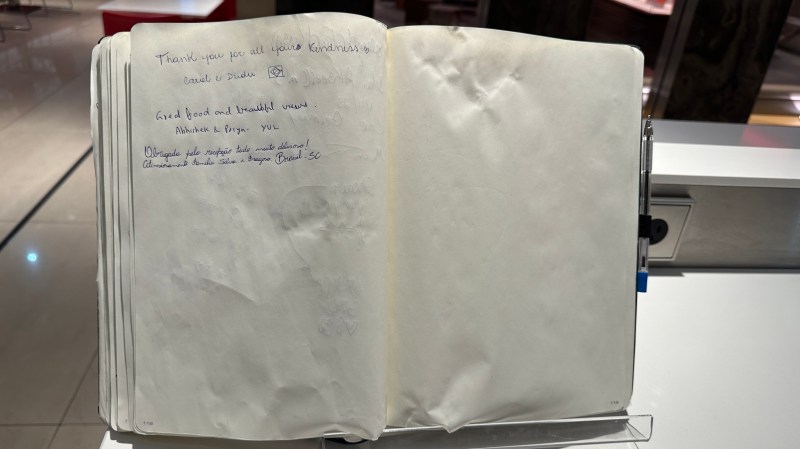 Thank you for all your kindness
Carol e Dudu
Great food and beautiful views.
Abhishek & Priya. YUL
Obrigado pela recepção tudo muito delicioso!
Atenciosamente família Silva e Brasil-SC